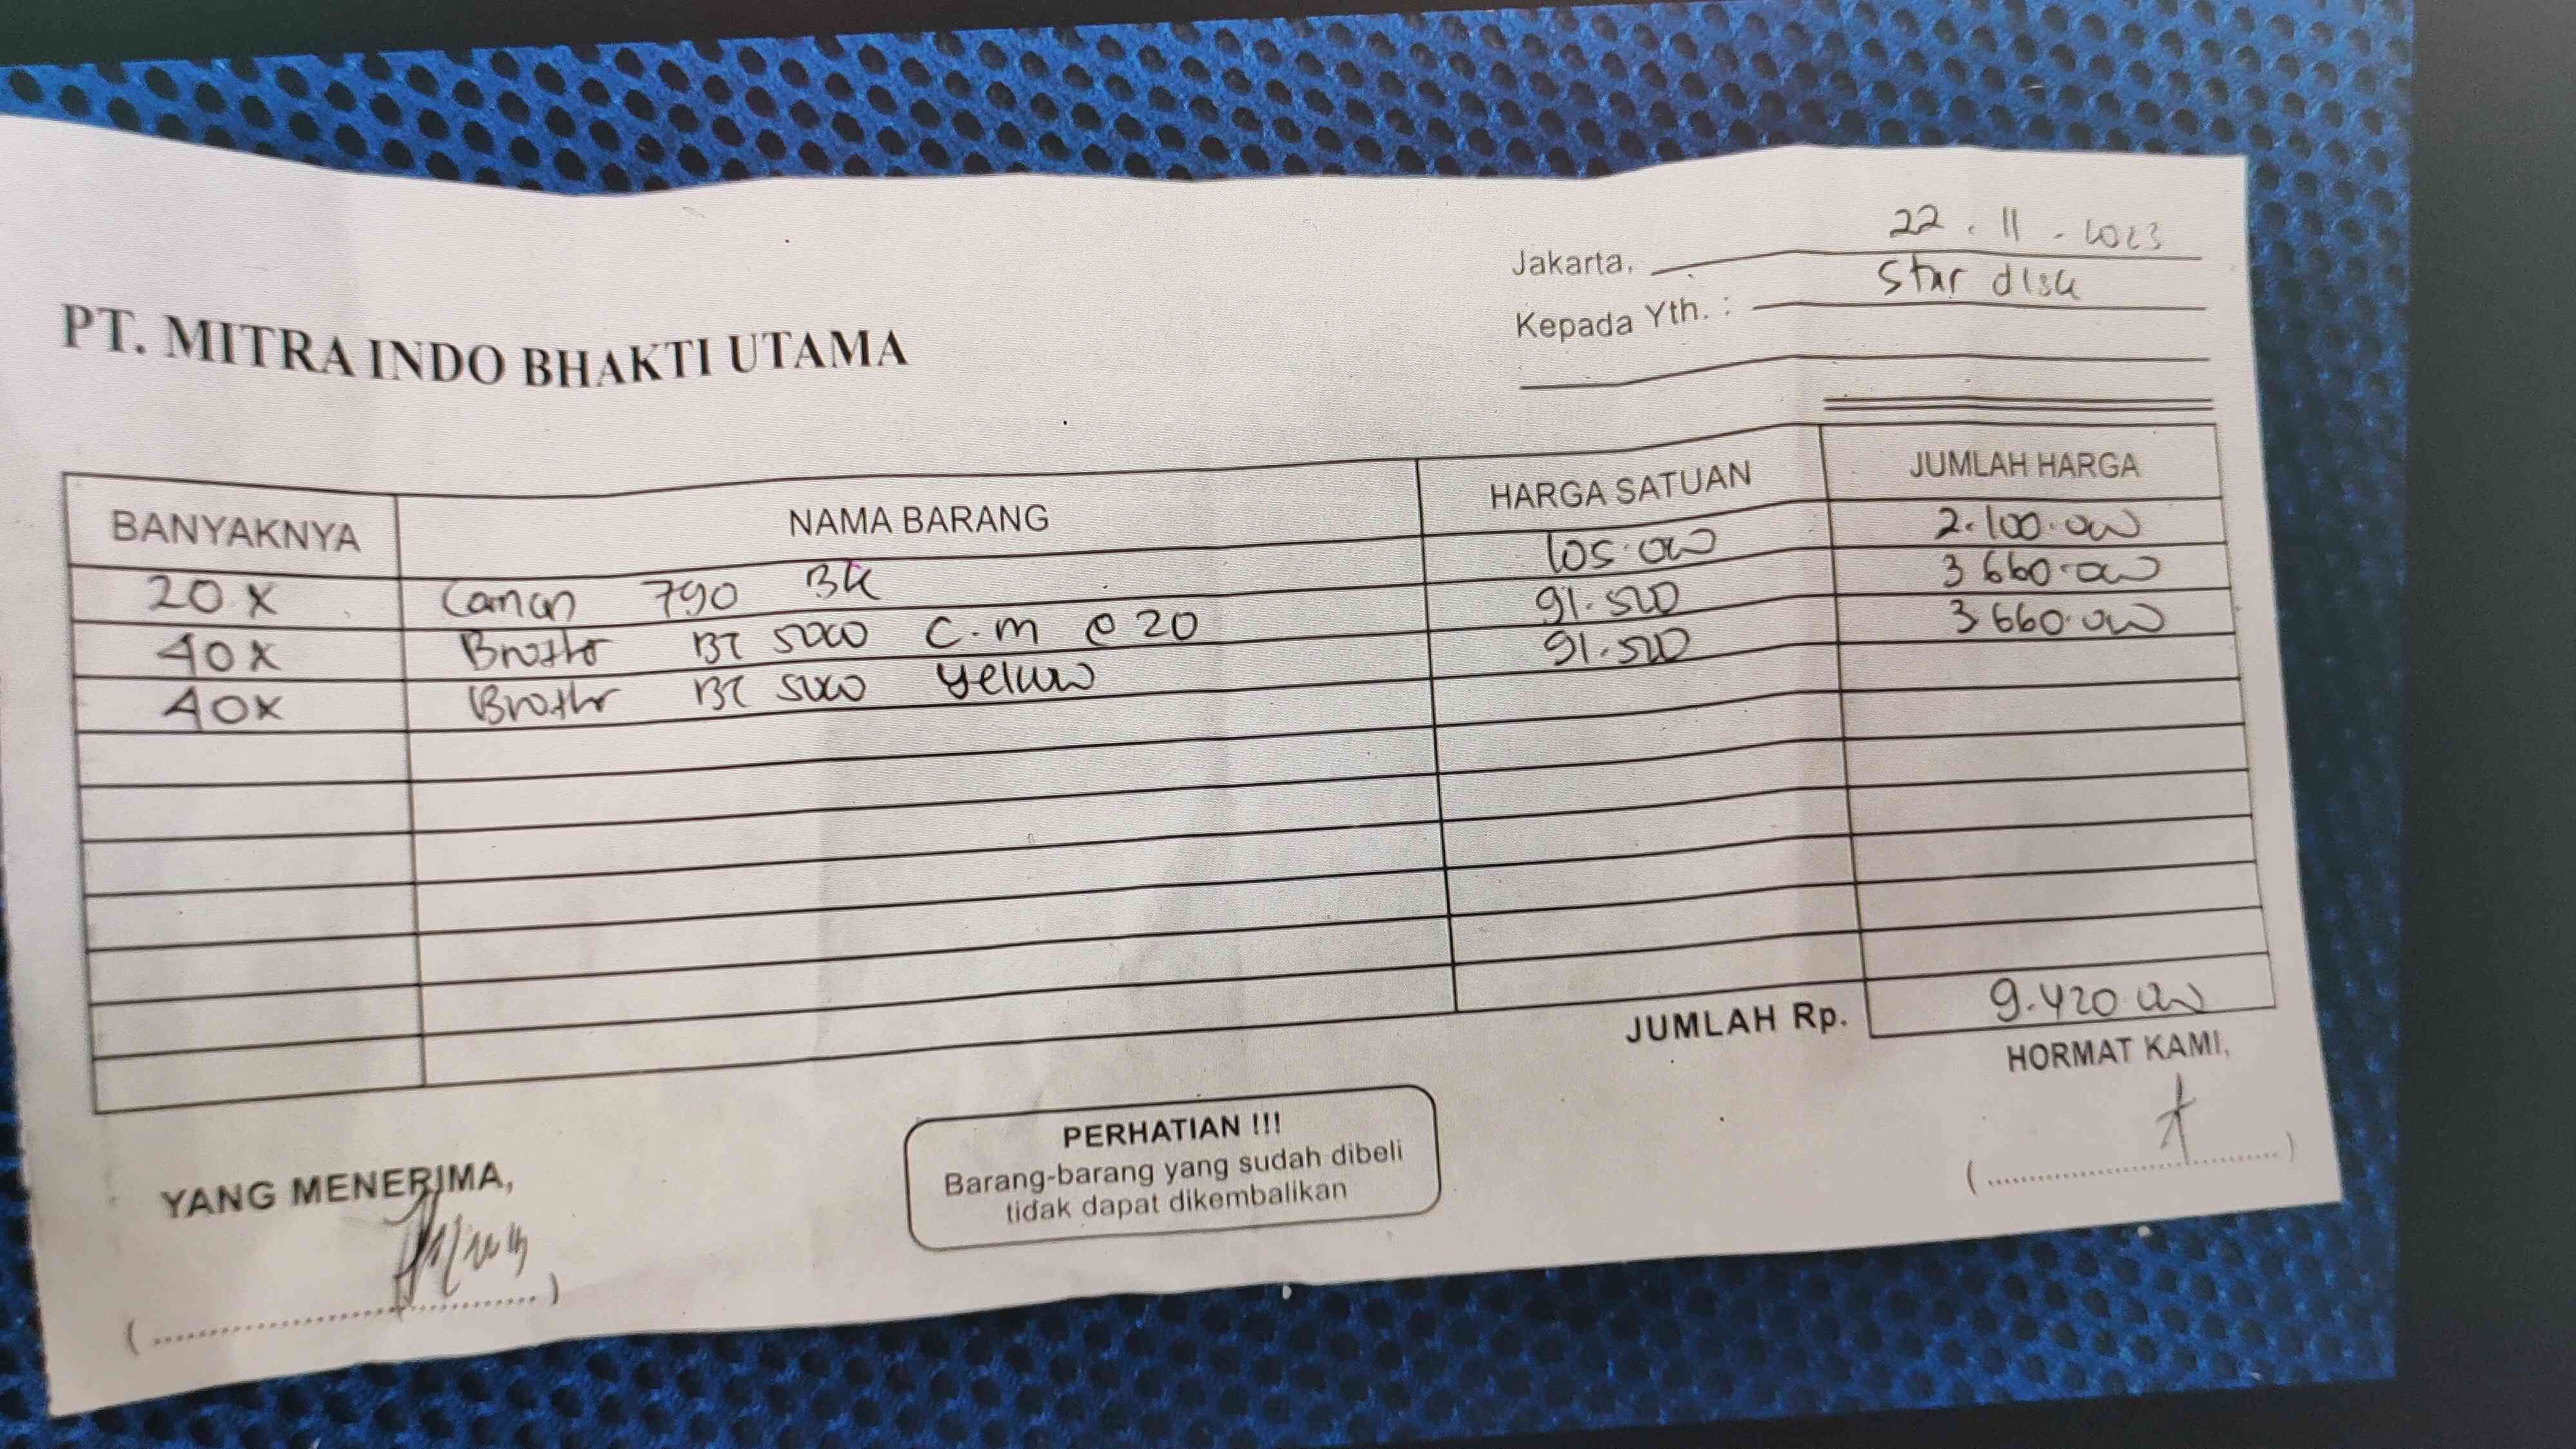 Jakarta, 22 . 11 - 2023
Kepada Yth. : Star disk
PT. MITRA INDO BHAKTI UTAMA
BANYAKNYA NAMA BARANG HARGA SATUAN JUMLAH HARGA
20 x Canon 790 Bk 105.000 2.100.000
40 x Brother BT 5000 C.m @ 20 91.500 3 660.000
40x Brother BT 5000 Yellow 91.500 3 660.000
JUMLAH Rp. 9.420 000
HORMAT KAMI,
YANG MENERIMA,
PERHATIAN !!!
Barang-barang yang sudah dibeli
tidak dapat dikembalikan